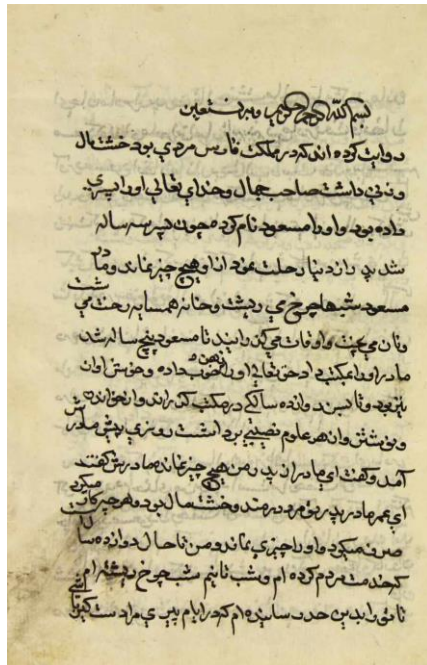 بسم الله الرحمن الرحیم و به نستعین
روایت کرده اند که در مملکت فارس مردی بود خشتمال
و زنی داشت صاحب جمال و خدای تعالی او را پسری
داده بود و او را مسعود نام کرده چون پسر سه ساله
شد پدر از دنیا رحلت نمود از او هیچ چیز نماند و مادر
مسعود شبها چرخ می رشت و خانه همسایه رخت می شست
و نان می پخت و اوقات می گذرانیدند تا مسعود پنج ساله شد
مادر او را بمکتب داد حق تعالی او را ذهن خوب داده و خوش اوان
بود و تا بسن دوازده سالگی در مکتب گذراند و ان خوانده
و نوشتن و از هر علوم نصیبی برداشت روزی پیش مادرش
آمد و گفت ای مادر از پدر من هیچ چیز نمانده مادرش گفت
ای عمر مادر پدر تو مرد درمند و خشتمال بود و هر چه کار میکرد
صرف میکرد و او را چیزی نماند و من تا حال دوازده سال
که خدمت مردم کرده ام و شب تا نیم شب چرخ رشته ام
تا تو را بدین حد رسانیده ام که در ایام پیری مرا دست گیر باشی